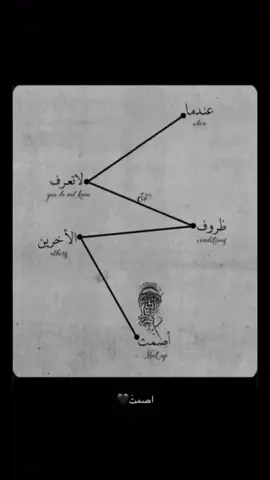 عندما
when
لا تعرف
you do not know
ظروف
conditions
الأخرين
others
أصمت
Shut up
اصمت🖤